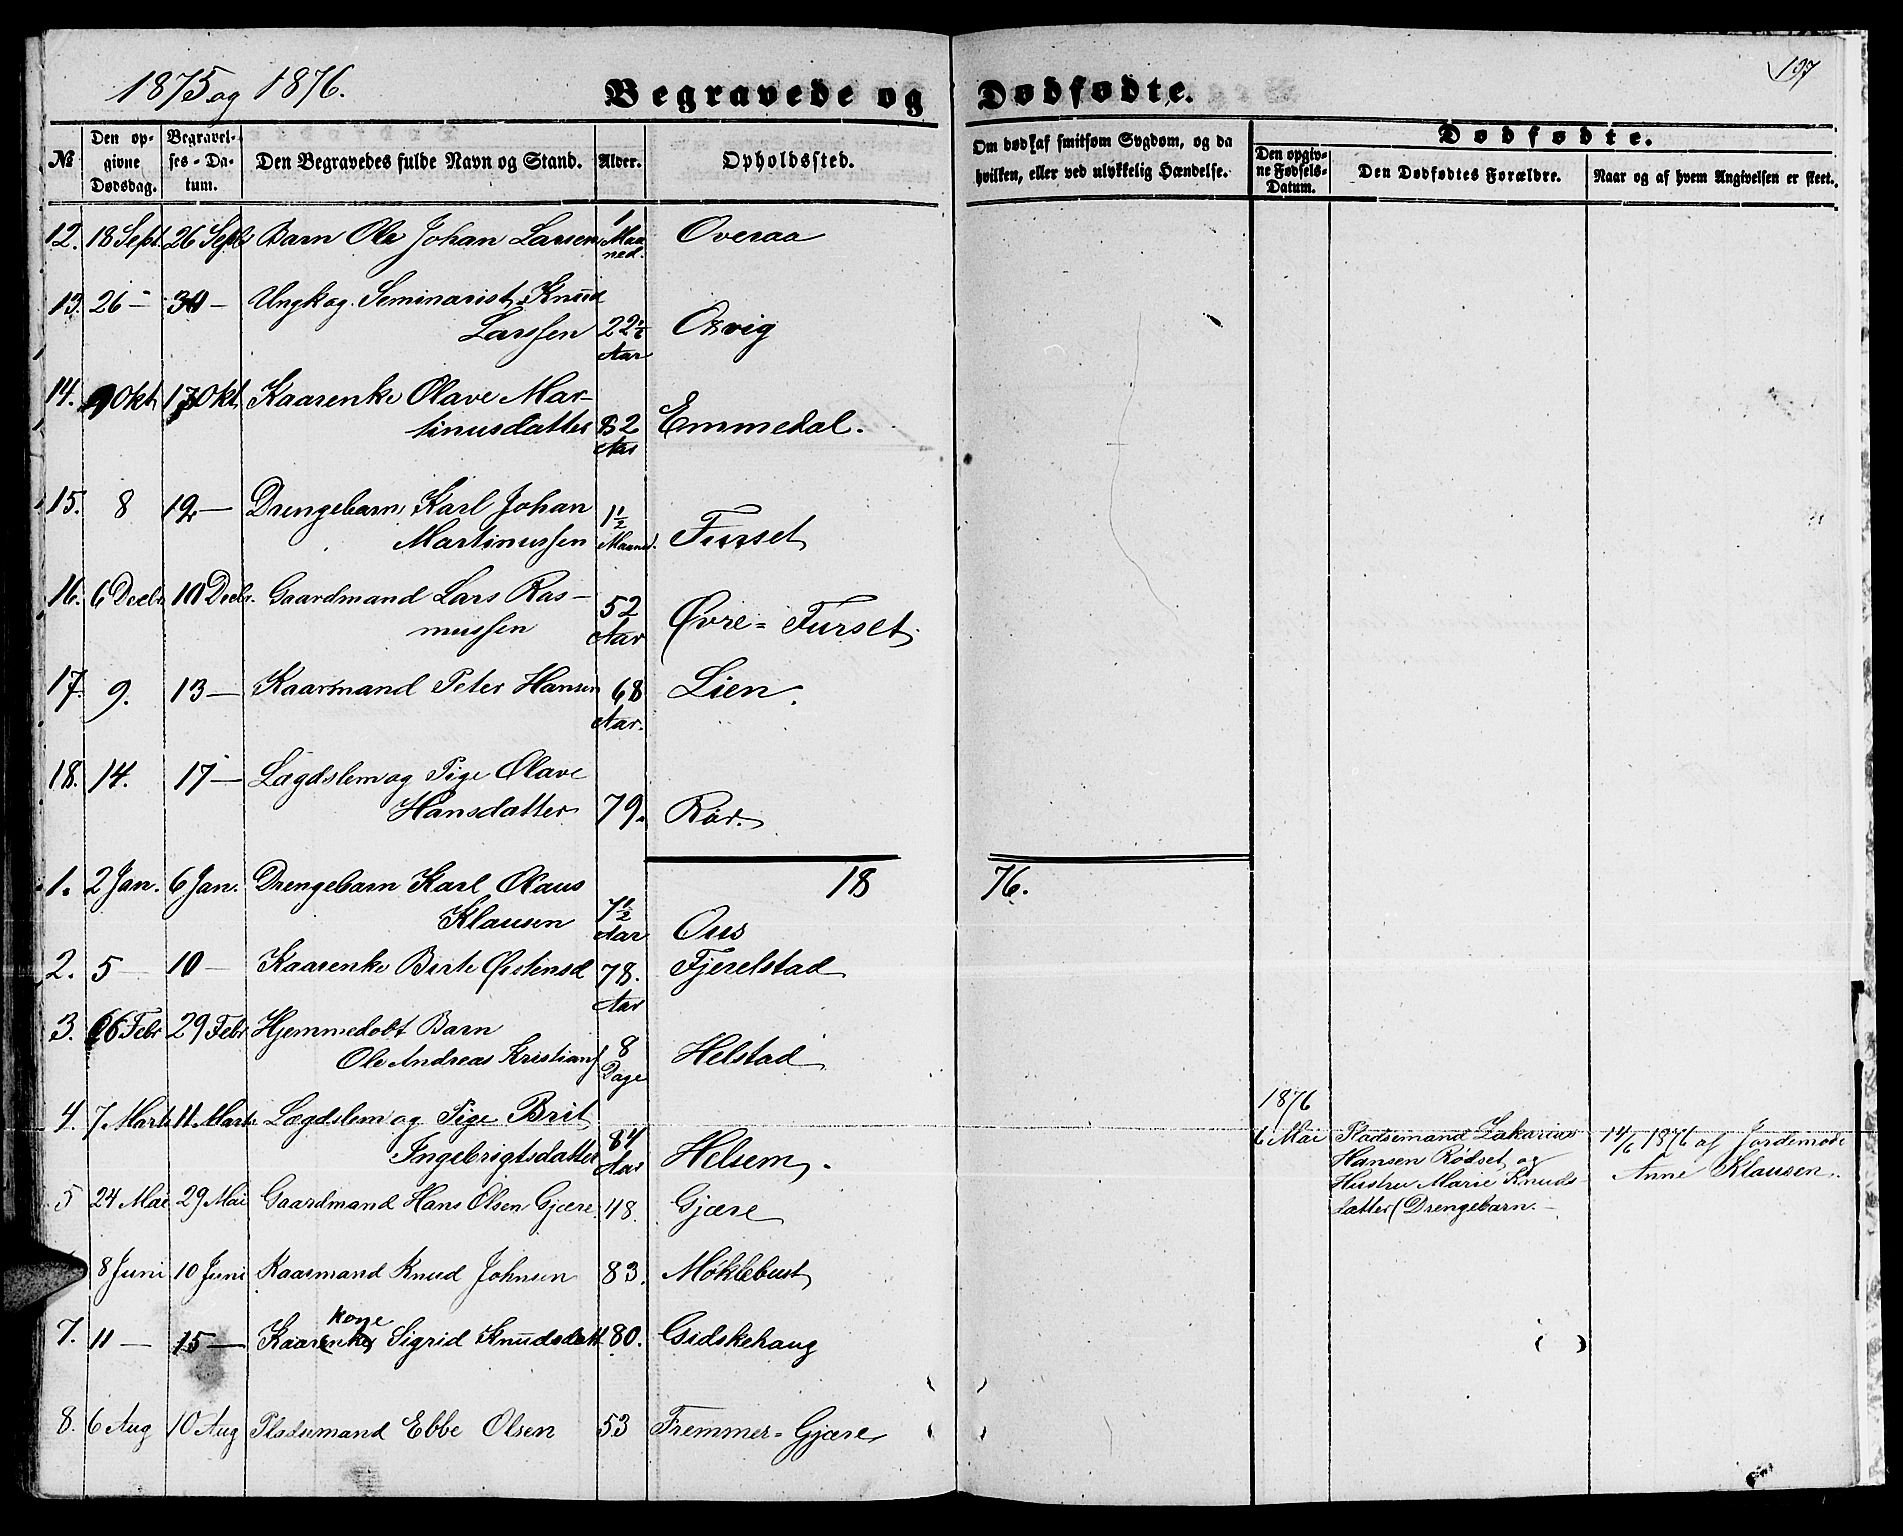 1875 og 1876.
Begravede og Dødfødte.
197
No
Den opgivne Dødsdag.
Begravelses-Datum.
Den Begravedes fulde Navn og Stand.
Alder.
Opholdssted.
Om død af smitsom Sygdom, og da hvilken, eller ved ulykkelig Hændelse.
Dødfødte.
Den opgivne Fødsels-Datum.
Den Dødfødtes Forældre.
Naar og af hvem Angivelsen er skeet.
12. 18 Sept. 26 Septb Barn Ole Johan Larsen 1 Maaned. Overaa
13. 26 — 30 — Ungk og Seminarist Knud
Larssen 22½ Aar Osvig
14. 9 Okt 17 Okt Kaarenke Olave Mar-
tinusdatter 82 Aar Emmedal.
15. 8 12 — Drengebarn Karl Johan
Martinussen 1½ Maaned. Furset
16. 6 Decbr 10 Decbr. Gaardmand Lars Ras-
mussen 52 Aar Øvre=Furset.
17. 9. 13 — Kaarmand Peter Hansen 68 Aar. Lien.
18. 14. 17 — Lægdslem og Pige Olave
Hansdatter 79. Rør.
18 76.
1. 2 Jan. 6 Jan. Drengebarn Karl Olaus
Klausen 7½ Aar Ous
2. 5 — 10 — Kaarenke Birte Østensd 78. Aar Fjerelstad
3. 26 Febr 29 Febr Hjemmedøbt Barn
Ole Andreas Kristians 8 Dage Helstad
4. 7 Marts 11 Marts Lægdslem og Pige Brit
Ingebrigtsdatter 84 Aar Helsem.
5 24 Mai 29 Mai Gaardmand Hans Olsen Gjære 48. Gjære
8 Juni 10 Juni Kaarmand Knud Johnsen 83. Møklebust
kone
7. 11 — 15 — Kaar(enke) Sigrid Knudsdatt 80. Gidskehaug
8. 6 Aug 10 Aug Pladsemand Ebbe Olsen 53 Fremmer=Gjære
1876
6 Mai Pladsemand Zakarias
Hansen Rødset og
Hustru Marie Knuds-
datter (Drengebarn. —
14/6 1876 af Jordemode
Anne Klausen.